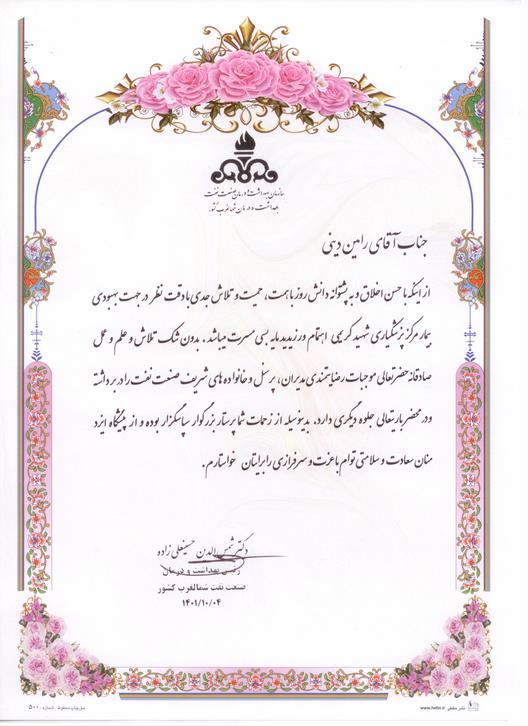 سازمان بهداشت و درمان صنعت نفت
بهداشت و درمان شمالغرب کشور
جناب آقای رامین دینی
از اینکه با حسن اخلاق و به پشتوانه دانش روز با همت، حمیت و تلاش جدی با دقت نظر در جهت بهبودی
بیمار مرکز پزشکیاری شهید کریمی اهتمام ورزیدید مایه بسی مسرت میباشد. بدون شک تلاش و علم و عمل
صادقانه حضرتعالی موجبات رضایتمندی مدیران، پرسنل و خانواده های شریف صنعت نفت را در برداشته
و در محضر باریتعالی جلوه دیگری دارد. بدینوسیله از زحمات شما پرستار بزرگوار سپاسگزار بوده و از پیشگاه ایزد
منان سعادت و سلامتی توام با عزت و سرفرازی را برایتان خواستارم.
دکتر شمس الدین حسینعلی زاده
رئیس بهداشت و درمان
صنعت نفت شمالغرب کشور
۱۴۰۱/۱۰/۰۴
حق چاپ محفوظ - شماره: ۵۰۰
www.hefzi.ir نشر حفظی